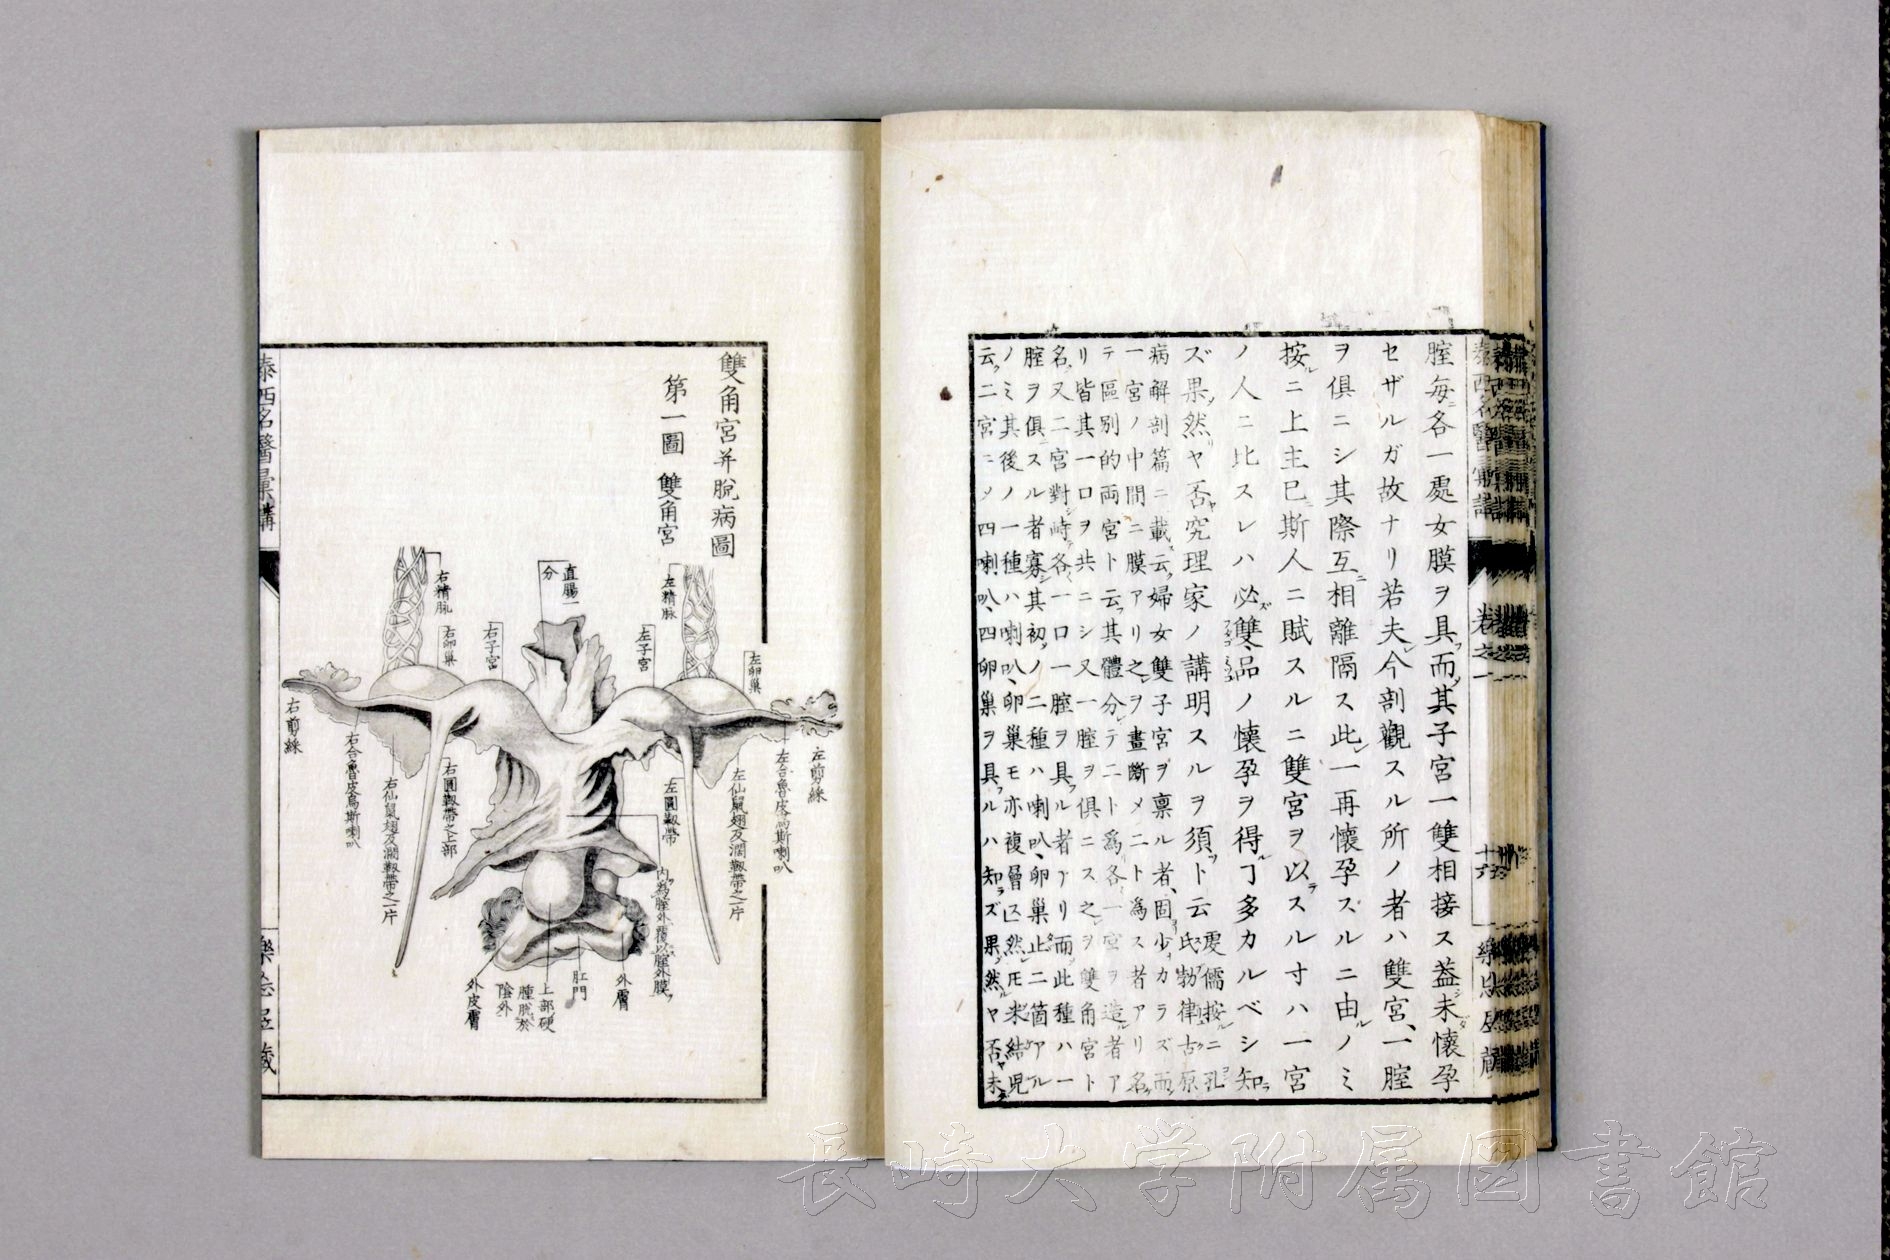 腟毎各一處女膜ヲ具而其子宮一雙相接ス葢未懷孕
セザルガ故ナリ若夫今剖觀スル所ノ者ハ雙宮、一腟
ヲ俱ニシ其際互相離隔ス此一再懷孕スルニ由ノミ
按ニ上主已斯人ニ賦スルニ雙宮ヲ以スル寸ハ一宮
ノ人ニ比スレハ必雙品ノ懷孕ヲ得ル丁多カルベシ知
ズ果然ヤ否究理家ノ講明スルヲ須ト云
處儒按ニ孔
氏勃律古原
病解剖篇ニ載云婦女雙子宮ヲ禀ル者、固少カラズ而
一宮ノ中間ニ膜アリ之ヲ畫斷メニト為ス者アリ名
テ區別的両宮ト云其體分テニト為各一宮ヲ造者ア
リ皆其一口ヲ共ニシ又一腟ヲ俱ニス之ヲ雙角宮ト
名又二宮對峙各一口一腟ヲ具ル者アリ而此種ハ一
腟ヲ俱スル者寡其初ノ二種ハ喇叭、卵巢止二箇アル
ノミ其後ノ一種ハ喇叭、卵巢モ亦複層
云二宮ニメ四喇叭、四卵巢ヲ具ルハ知ズ果然ヤ否未
泰西名醫彙講
卷之一
十六
雙角宮并脫病圖
第一圖 雙角宮
左卵巢
左剪綵
左精脉
左子宮
直腸一
分
右子宮
右精脉
右卵巢
右剪綵
左合魯皮烏斯喇叭
左仙鼠翅及濶靱帶之一片
左圓靱帶
內為腟外覆以腟外膜
右圓靱帶之上部
右仙鼠翅及濶靱帶之一片
右合魯皮烏斯喇叭
外膚
肛門
上部硬
腫脫於
陰外
外皮膚
泰西名醫彙講
長崎大学附属図書館